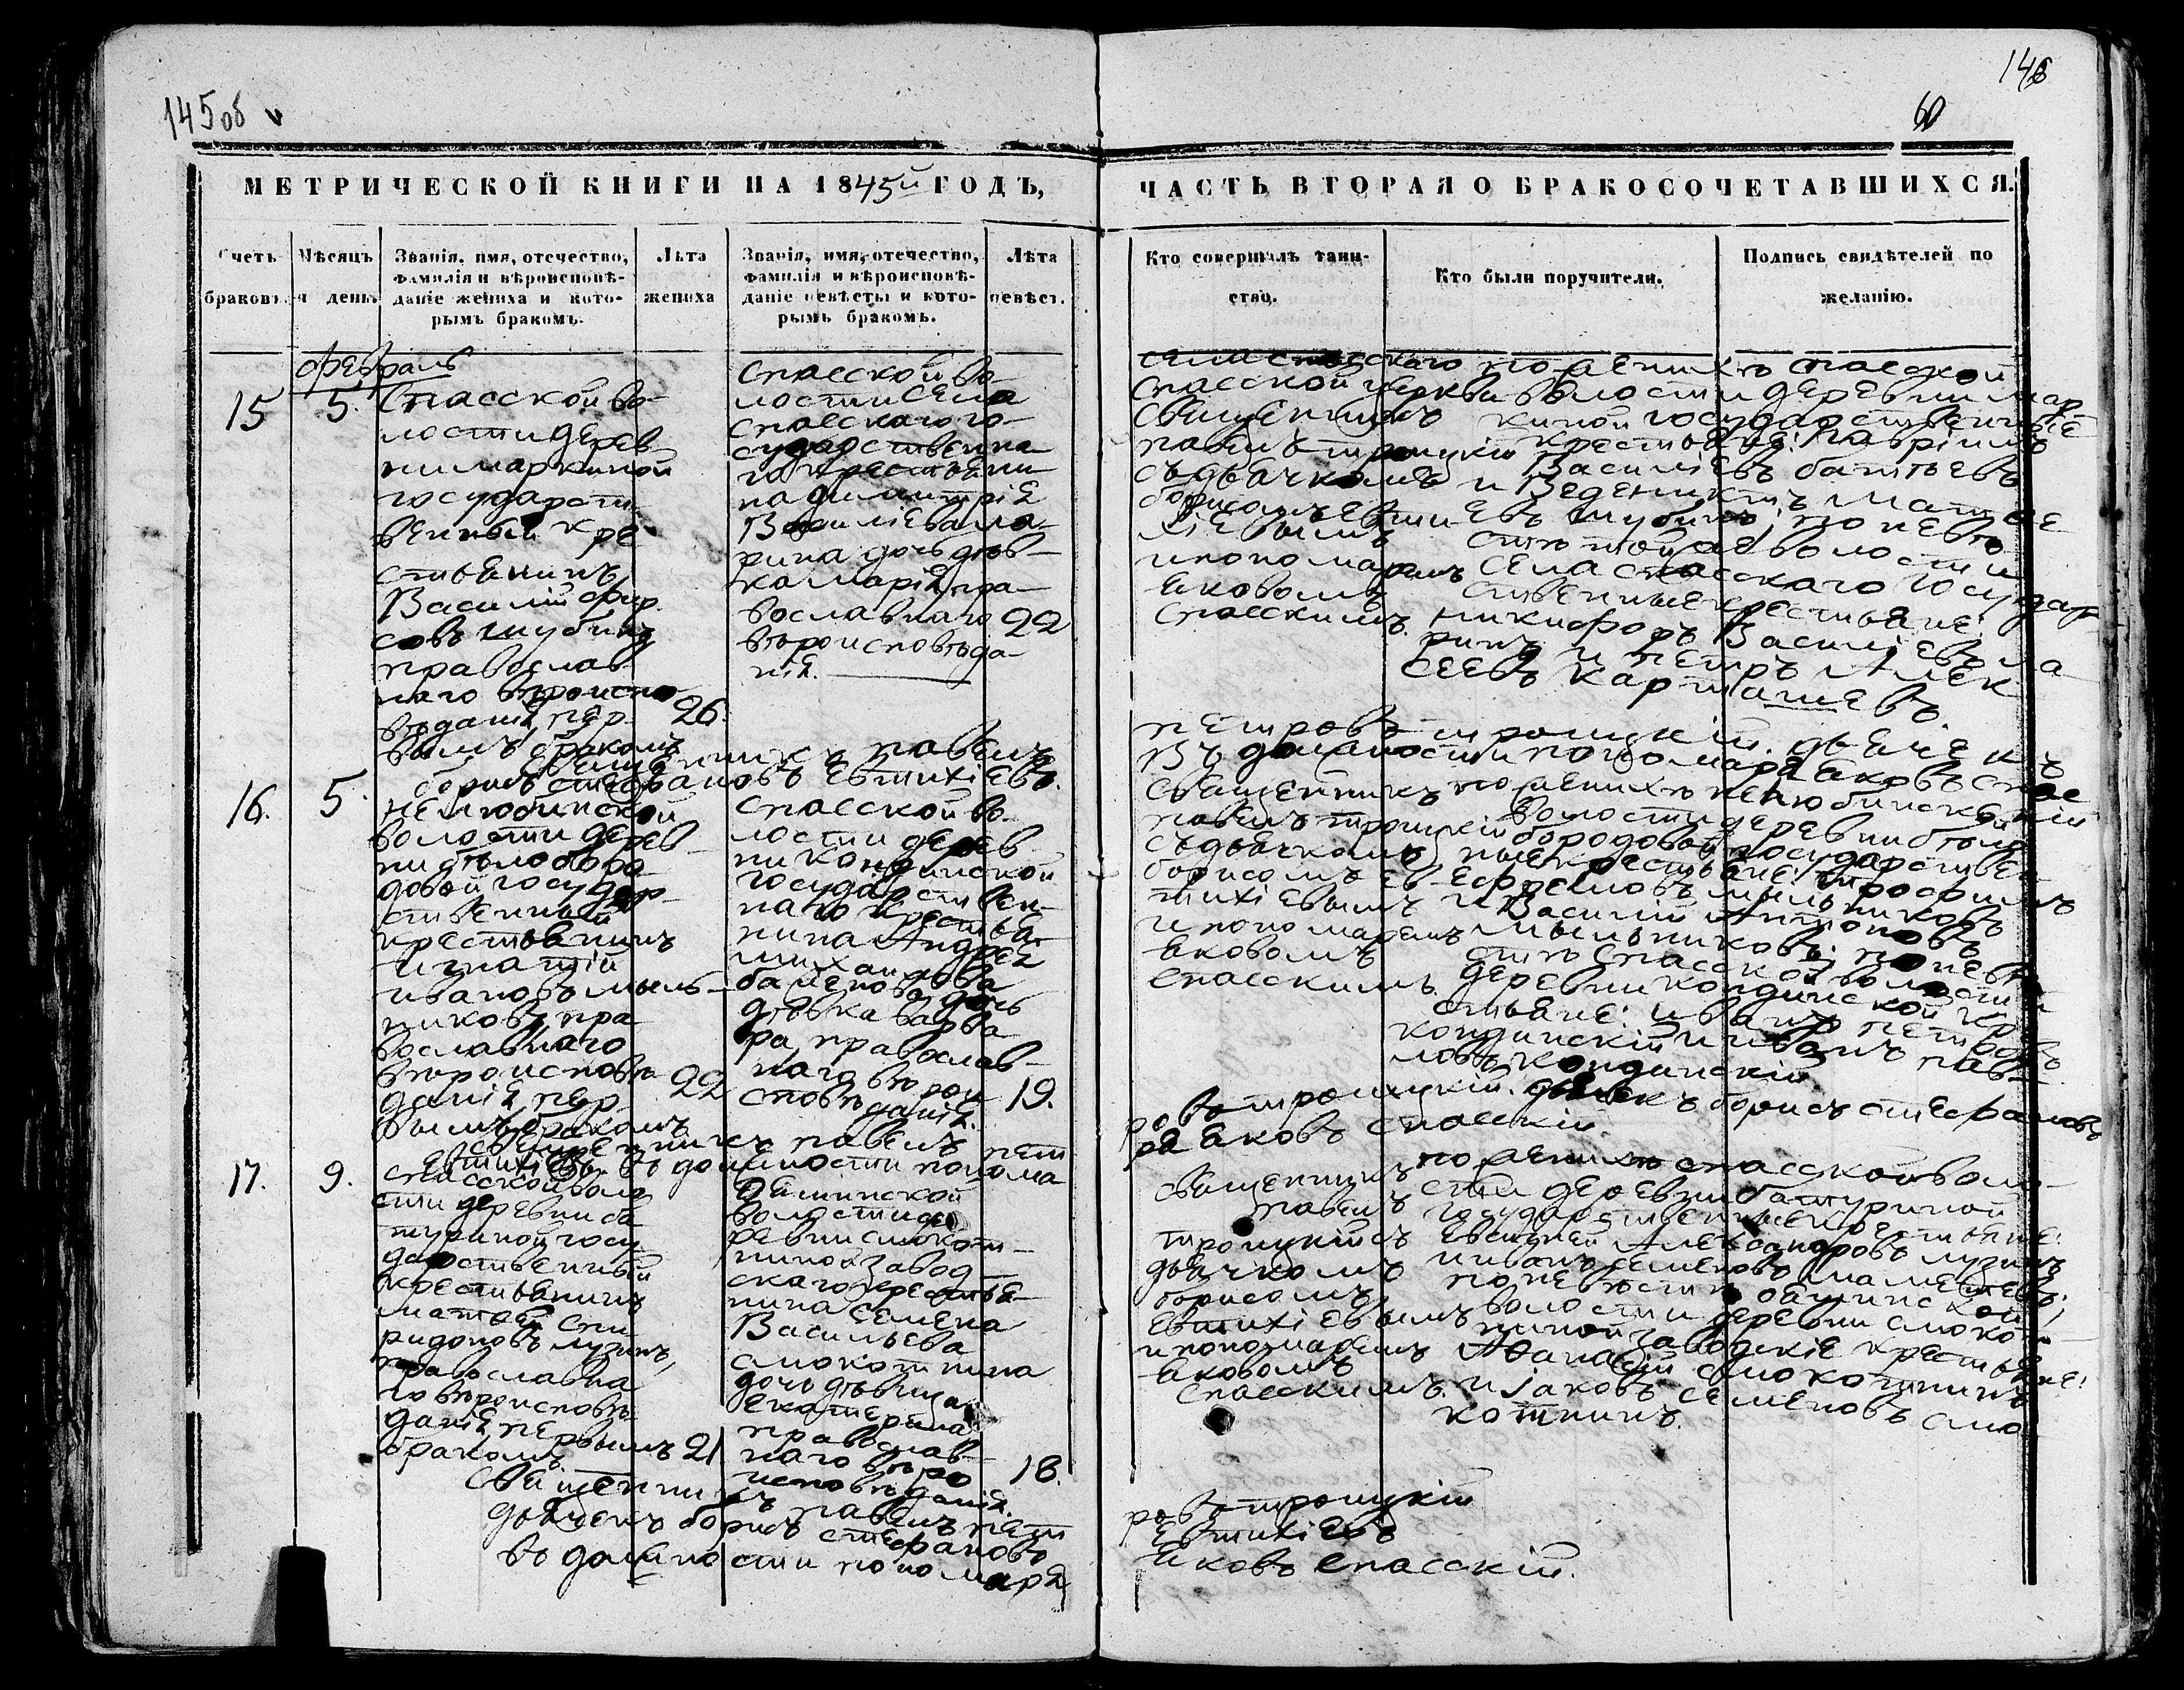 145 об
146
60
МЕТРИЧЕСКОЙ КНИГИ НА 1845й ГОДЪ,
ЧАСТЬ ВТОРАЯ О БРАКОСОЧЕТАВШИХСЯ.
Счетъ браковъ.
Мѣсяцъ и день.
Званія, имя, отечество,
фамилія и вѣроисповѣ-
даніе жениха и кото-
рымъ бракомъ.
Лѣта
жениха
Званія, имя, отечество,
фамилія и вѣроисповѣ-
даніе невѣсты и кото-
рымъ бракомъ.
Лѣта
невѣст.
Кто совершалъ таин-
ство.
Кто были поручители.
Подпись свидѣтелей по
желанію.
Февраль
15
5.
Спасской во-
лости дерев-
ни маркиной
государст-
венный кре-
стьянинъ
Василій Фир
совъ шубинъ
православ
наго вѣроиспо-
вѣданія, пер-
вымъ бракомъ
26.
Спасской во-
лости села
спасскаго го-
сударственна-
го крестьяни-
на димитрія
Василіева ма-
рина дочь дѣв-
ка марія, пра-
вославнаго
вѣроисповѣда-
нія.
22
села спасскаго
спасской церкви
священникъ
павелъ троицкій
съ дьячкомъ
борисомъ евти-
хіевымъ
и пономаремъ
Яковомъ
спасскимъ.
по женихѣ спасской
волости деревни мар
киной государственные
крестьяне: Гавріилъ
Василіевъ батневъ
и Веденихтъ матвѣ
евъ шубинъ; по невѣ
стѣ той же волости
села спасскаго государ
ственные крестьяне:
никифоръ Василіевъ ма
ринъ и петръ Алек
сеевъ карташевъ.
священникъ павелъ
петровъ троицкій. дьячекъ
борисъ стефановъ Евтихіевъ.
Въ должности пономаря Яковъ спасскій
16.
5.
нелюбинской
волости дерев-
ни бѣлоборо
довой государ-
ственный
крестьянинъ
игнатій
ивановъ мыль-
никовъ, пра
вославнаго
вѣроисповѣ
данія, пер-
вымъ бракомъ
22
спасской во-
лости дерев
ни кондинской
государствен-
наго крестья-
нина Андрея
михаилова
дочь
дѣвка варва
ра, православ-
наго вѣрои
сповѣданія.
19.
священникъ
павелъ троицкій
съ дьячкомъ
борисомъ ев-
тихіевымъ
и пономаремъ
Яковомъ
спасскимъ.
по женихѣ нелюбинской
волости деревни бѣло
бородовой государствен
ные крестьяне: трофимъ
ефремовъ мыльниковъ
и Василій Антоновъ
мыльниковъ; по невѣ
стѣ спасской волости
деревни кондинской кре
стьяне: иванъ петровъ
кондинскій и иванъ пав-
ловъ кондинскій.
священникъ павелъ пет
ровъ троицкій. дьячекъ борисъ стефановъ
евтихіевъ. въ должности понома
ря Яковъ спасскій.
17.
9.
спасской воло
сти деревни ба
туриной госу
дарственный
крестьянинъ
матвѣй спи
ридоновъ лузинъ,
православна
го вѣроисповѣ
данія, первымъ
бракомъ.
21
Ояшинской
волости де
ревни смокот-
ниной завод-
скаго крестья-
нина семена
Васильева
смокотнина
дочь дѣвица
екатерина
православ-
наго вѣро
исповѣданія.
18.
священникъ
павелъ
троицкій съ
дьячкомъ
борисомъ
Евтихіевымъ
и пономаремъ
Яковомъ
спасскимъ.
по женихѣ спасской воло-
сти деревни батуриной
государственные крестьяне:
Евсигней Александровъ лузинъ
и иванъ семеновъ
по невѣстѣ ояшинской
волости деревни смокот
ниной заводскіе крестьяне:
Аѳанасій смокотнинъ
и Іаковъ семеновъ смо
котнинъ.
священникъ павелъ пет
ровъ троицкій
дьячекъ борисъ стефановъ
Евтихіевъ
въ должности пономаря
Яковъ спасскій.